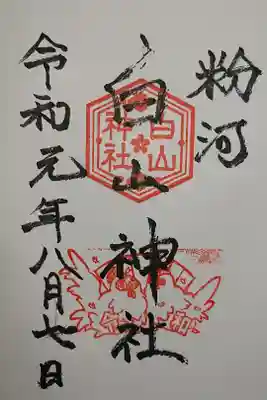 粉河
白山神社
令和元年八月七日
白山
神社